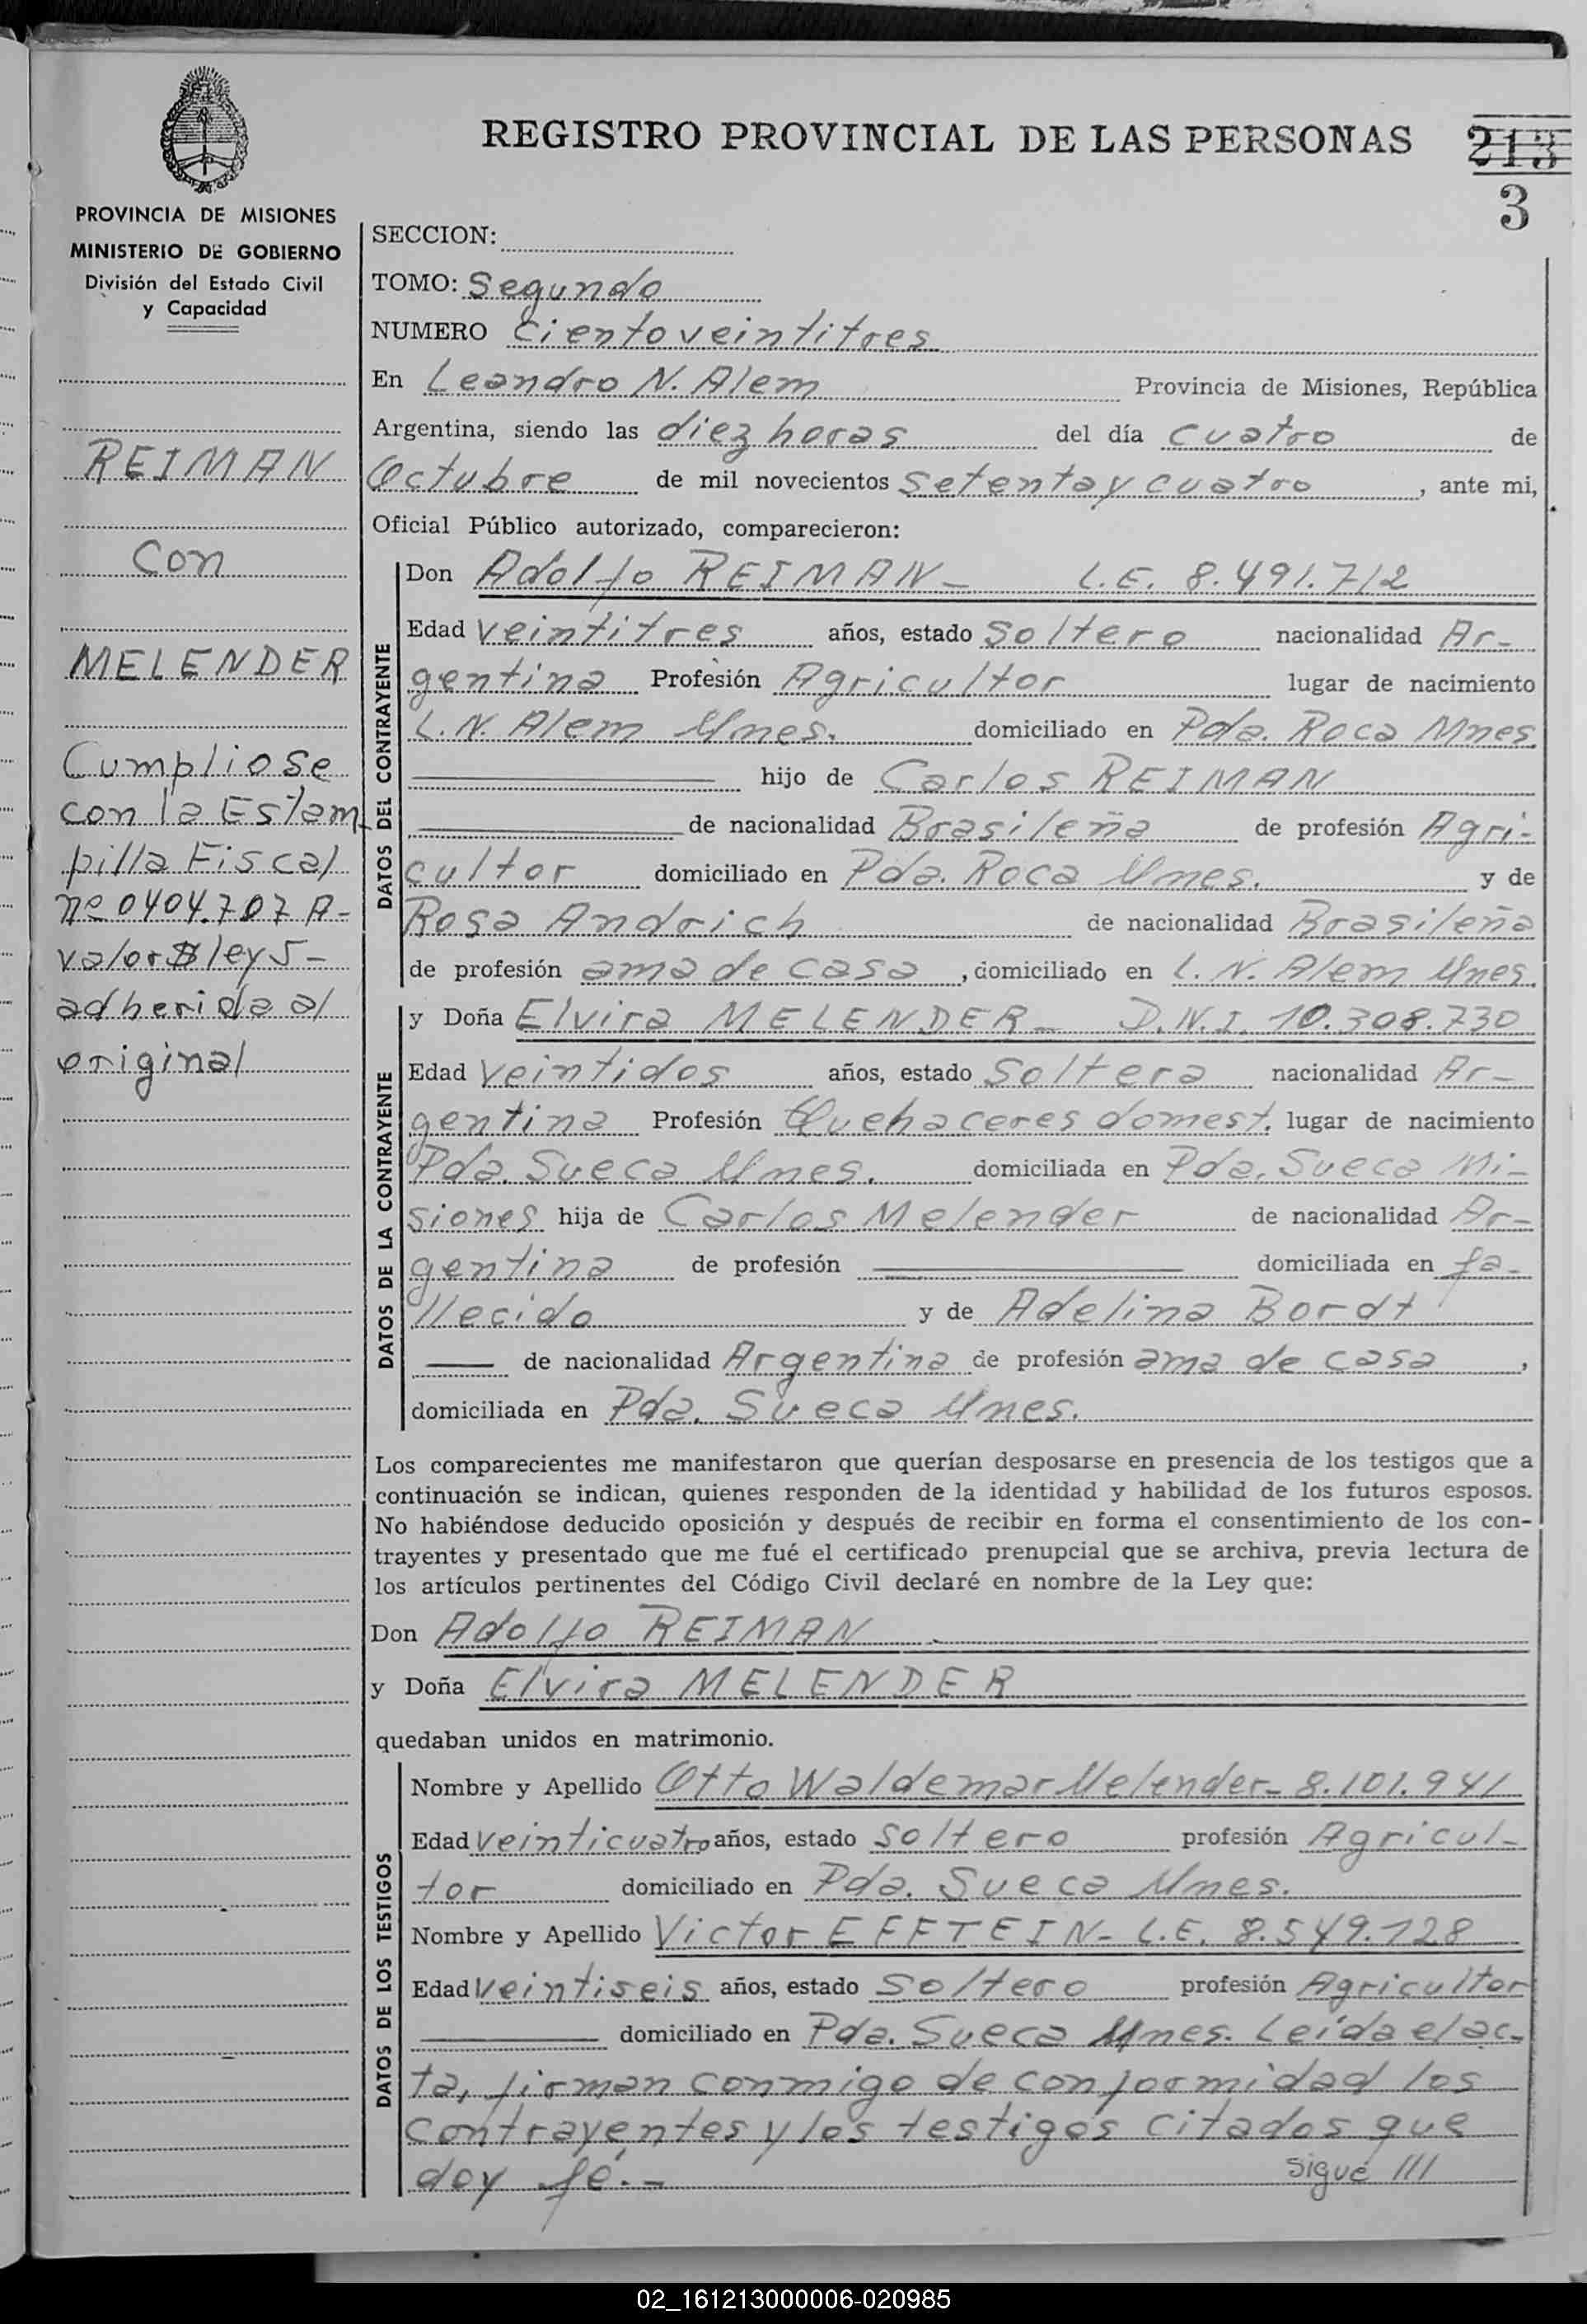 REGISTRO PROVINCIAL DE LAS PERSONAS
213
3
PROVINCIA DE MISIONES
MINISTERIO DE GOBIERNO
División del Estado Civil
y Capacidad
REIMAN
con
MELENDER
Cumpliose
con la Estam-
pilla Fiscal
nº 0404.707 A-
valor $ ley 5-
adherida al
original
SECCION:
TOMO: Segundo
NUMERO Ciento veintitres
En Leandro N. Alem Provincia de Misiones, República
Argentina, siendo las diez horas del día cuatro de
Octubre de mil novecientos setenta y cuatro, ante mi,
Oficial Público autorizado, comparecieron:
DATOS DEL CONTRAYENTE
Don Adolfo REIMAN- L.E. 8.491.712
Edad veintitres años, estado Soltero nacionalidad Ar-
gentina Profesión Agricultor lugar de nacimiento
L.N. Alem Mnes. domiciliado en Pda. Roca Mnes.
hijo de Carlos REIMAN
de nacionalidad Brasileña de profesión Agri-
cultor domiciliado en Pda. Roca Mnes. y de
Rosa Andrich de nacionalidad Brasileña
de profesión ama de casa, domiciliado en L.N. Alem Mnes.
DATOS DE LA CONTRAYENTE
y Doña Elvira MELENDER- D.N.I. 10.308.730
Edad veintidos años, estado Soltera nacionalidad Ar-
gentina Profesión Quehaceres domest. lugar de nacimiento
Pda. Sueca Mnes. domiciliada en Pda. Sueca Mi-
siones hija de Carlos Melender de nacionalidad Ar-
gentina de profesión domiciliada en fa-
llecido y de Adelina Bordt
de nacionalidad Argentina de profesión ama de casa,
domiciliada en Pda. Sueca Mnes.
Los comparecientes me manifestaron que querían desposarse en presencia de los testigos que a
continuación se indican, quienes responden de la identidad y habilidad de los futuros esposos.
No habiéndose deducido oposición y después de recibir en forma el consentimiento de los con-
trayentes y presentado que me fué el certificado prenupcial que se archiva, previa lectura de
los artículos pertinentes del Código Civil declaré en nombre de la Ley que:
Don Adolfo REIMAN
y Doña Elvira MELENDER
quedaban unidos en matrimonio.
DATOS DE LOS TESTIGOS
Nombre y Apellido Otto Waldemar Melender- 8.101.941
Edad veinticuatro años, estado soltero profesión Agricul-
tor domiciliado en Pda. Sueca Mnes.
Nombre y Apellido Victor EFFTEIN- L.E. 8.549.128
Edad veintiseis años, estado soltero profesión Agricultor
domiciliado en Pda. Sueca Mnes. Leída el ac-
ta, firman conmigo de conformidad los
contrayentes y los testigos citados que
doy fé.-
sigue ///
02_161213000006-020985